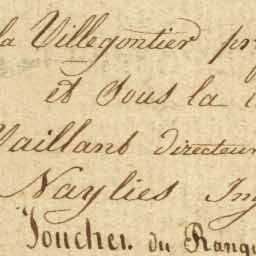 la Villegontier pr
et sous la
Vaillant directeur
Naylies Ing
Foucher. du Rang